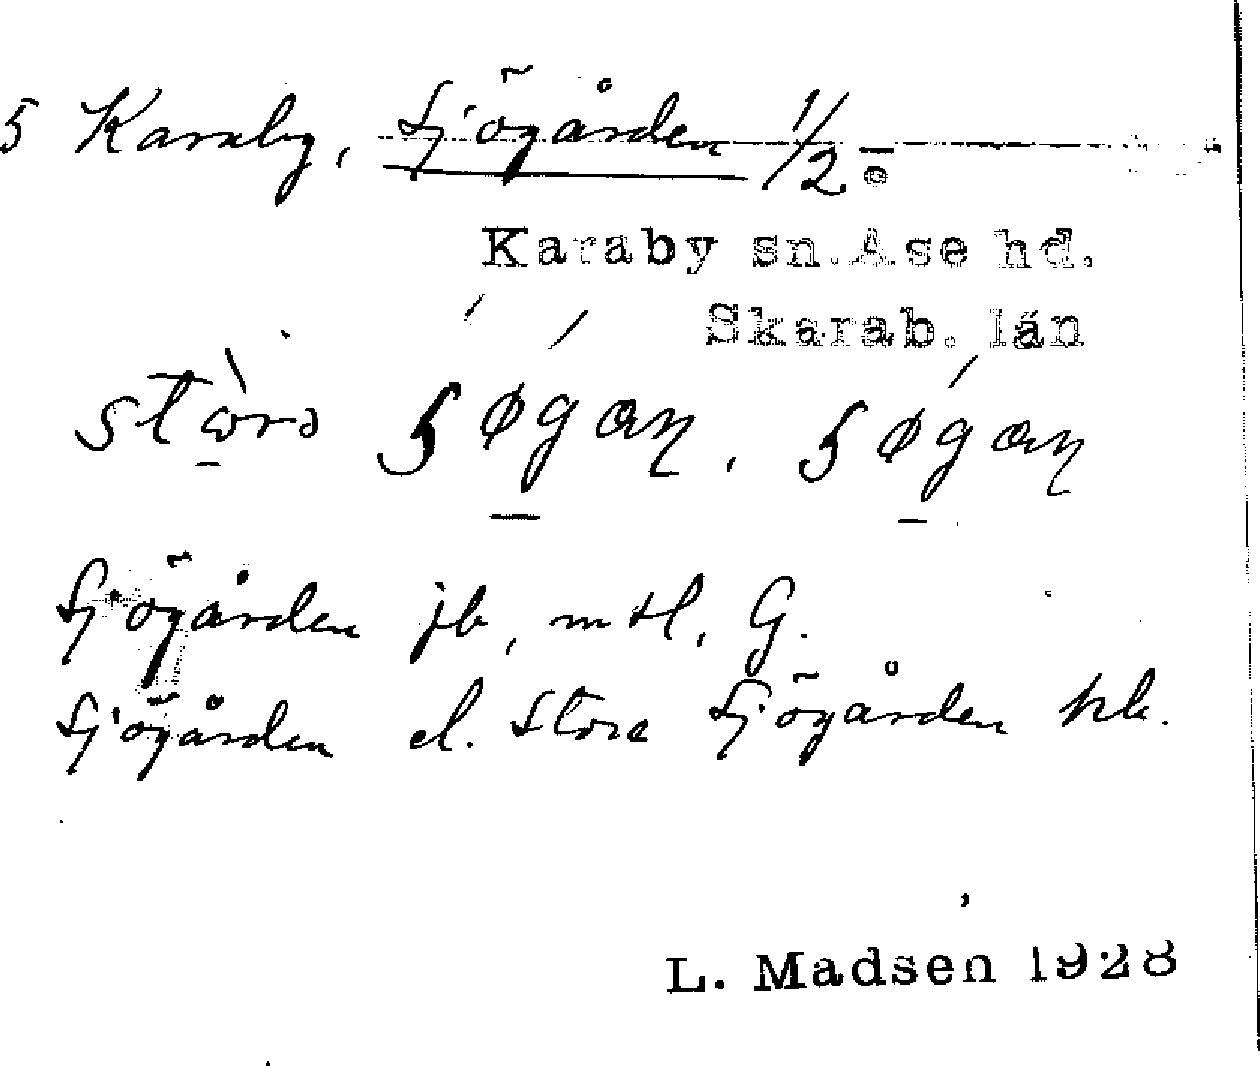 5 Karaby, Sjögården 1/2
Karaby sn. Åse hd.
Skarab. län
Sjögården jb, mtl, G.
Sjögården el. Store Sjögården hk.
L. Madsen 1928